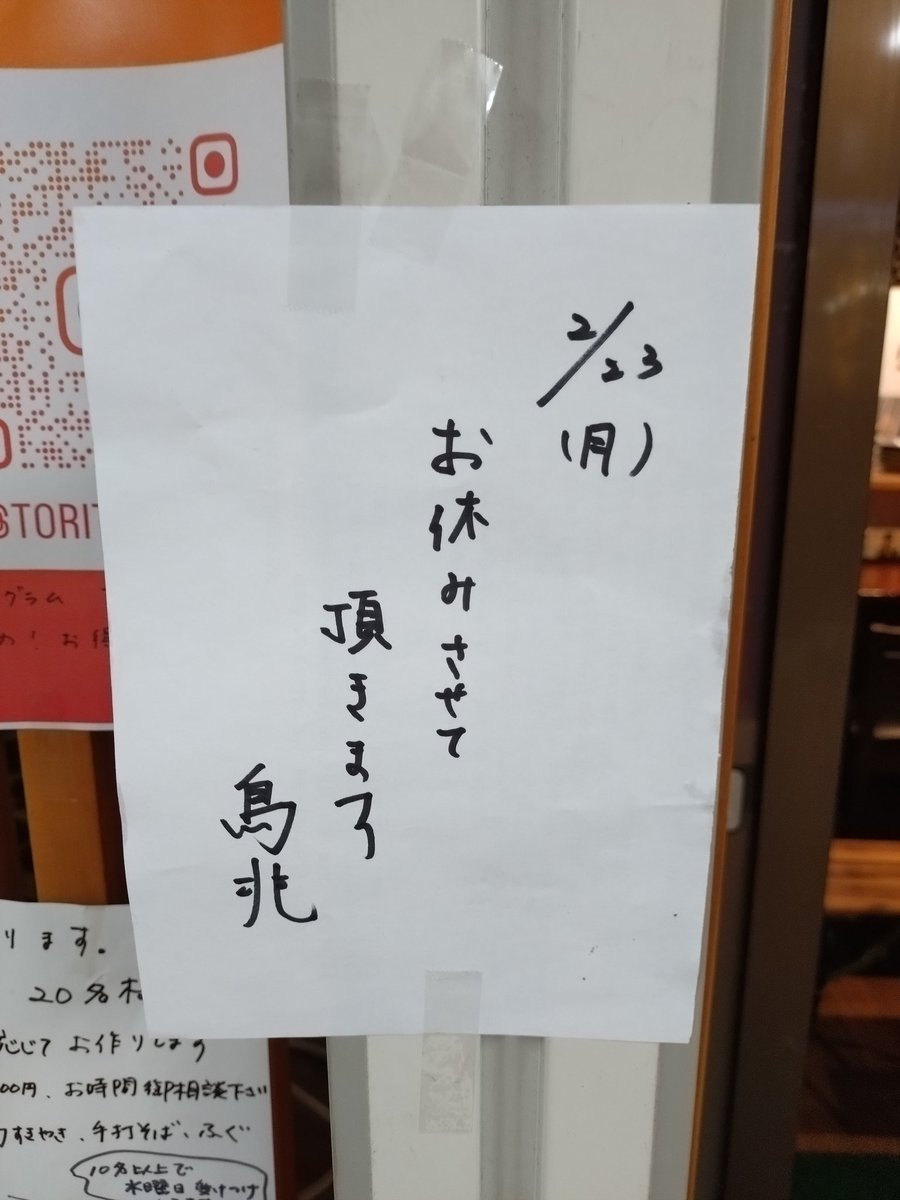 2/23
(月)
お休みさせて
頂きます
鳥兆
@TORIT
グラム
め！お得
ります。
20名様
応じてお作りします
00円、お時間御相談下さい
すきやき、手打そば、ふぐ
10名以上で
水曜日受けつけ